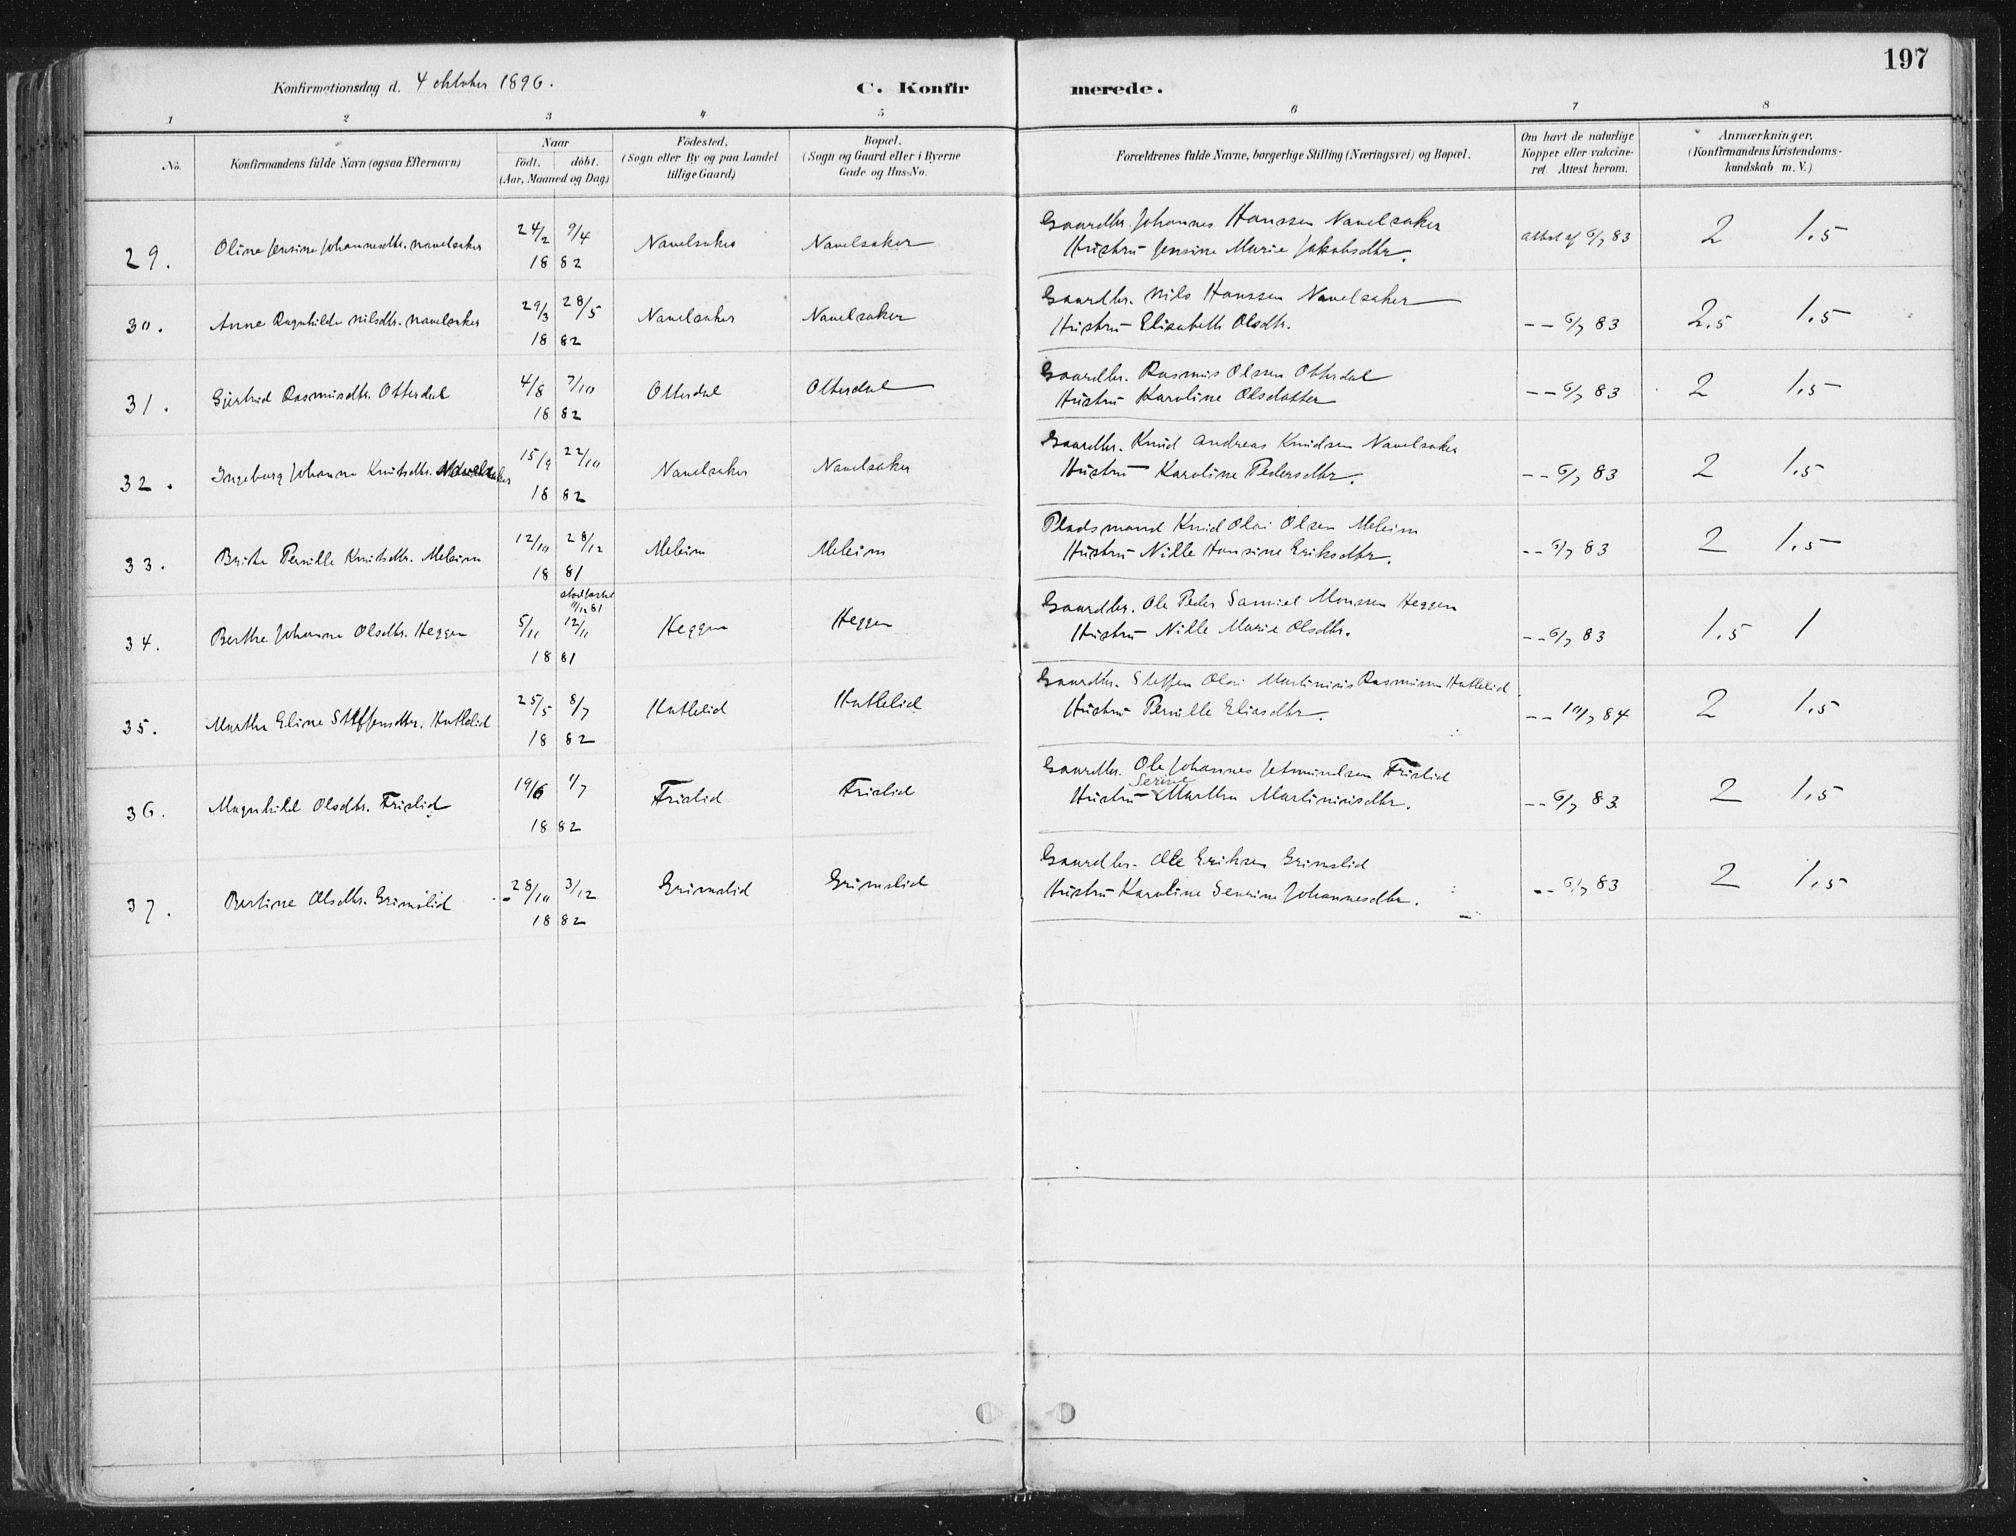 197
Konfirmationsdag d. 4 oktober 1896.
C. Konfir merede.
1 2 3 4 5 6 7 8
No. Konfirmandens fulde Navn (ogsaa Efternavn) Naar födt. döbt. (Aar, Maaned og Dag) Födested. (Sogn eller By og paa Landet tillige Gaard) Bopæl. (Sogn og Gaard eller i Byerne Gade og Hus-No. Forældrenes fulde Navne, borgerlige Stilling (Næringsvei) og Bopæl. Om havt de naturlige Kopper eller vakcineret. Attest herom. Anmærkninger. (Konfirmandens Kristendomskundskab m. V.)
29. Oline Jensine Johannesdtr. Navelsaker 24/2 9/4 1882 Navelsaker Navelsaker Gaardbr. Johannes Hanssen Navelsaker
Hustru Jensine Marie Jakobsdtr. Attest af 6/7 83 2 1.5
30. Anne Ragnhilde Nilsdtr. Navelsaker 29/3 28/5 1882 Navelsaker Navelsaker Gaardbr. Nils Hanssen Navelsaker
Hustru Elisabeth Olsdtr. -- 6/7 83 2.5 1.5
31. Gjertrud Rasmusdtr. Otterdal 4/8 7/10 1882 Otterdal Otterdal Gaardbr. Rasmus Olssen Otterdal
Hustru Karoline Olsdatter -- 6/7 83 2 1.5
32. Ingeborg Johanne Knutsdtr. Navelsaker 15/9 22/10 1882 Navelsaker Navelsaker Gaardbr. Knud Andreas Knudsen Navelsaker
Hustru Karoline Pedersdtr. -- 6/7 83 2 1.5
33. Brithe Pernille Knutsdtr. Meleim 12/10 28/12 1881 Meleim Meleim Pladsmand Knud Olai Olsen Meleim
Hustru Nille Hansine Eriksdtr. -- 6/7 83 2 1.5
34. Berthe Johanne Olsdtr. Heggen 5/11 11/12 81 12/11 1881 Heggen Heggen Gaardbr. Ole Peder Samuel Monssen Heggen
Hustru Nille Marie Olsdtr. -- 6/7 83 1.5 1
35. Marthe Eline Steffensdtr. Hatlelid 25/5 8/7 1882 Hatlelid Hatlelid Gaardbr. Steffen Olai Martinius Rasmussen Hatlelid
Hustru Pernille Eliasdtr. -- 10/7 84 2 1.5
36. Magnhild Olsdtr. Frislid 19/6 1/7 1882 Frislid Frislid Gaardbr. Ole Johannes Jetmundsen Frislid
Hustru Serine Marthea Martiniusdtr. -- 6/7 83 2 1.5
37. Bertine Olsdtr. Grimslid 28/10 3/12 1882 Grimslid Grimslid Gaardbr. Ole Eriksen Grimslid
Hustru Karoline Severine Johannesdtr. -- 6/7 83 2 1.5